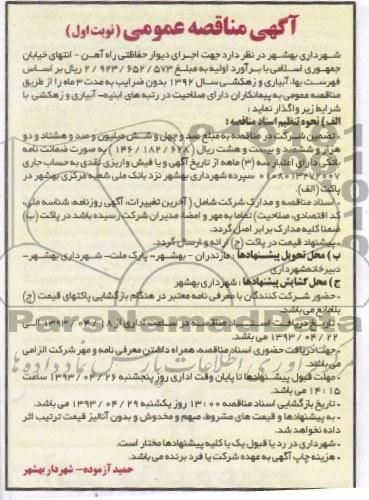 آگهی مناقصه عمومی (نوبت اول)
شهرداری بهشهر در نظر دارد جهت اجرای دیوار حفاظتی راه آهن - انتهای خیابان
جمهوری اسلامی با برآورد اولیه به مبلغ ۲/۹۲۳/۶۵۲/۵۷۳ ریال بر اساس
فهرست بها، آبیاری و زهکشی سال ۱۳۹۲ بدون ضرایب به مدت ۳ ماه را از طریق
مناقصه عمومی به پیمانکاران دارای صلاحیت در رتبه های ابنیه- آبیاری و زهکشی با
شرایط زیر واگذار نماید:
الف) نحوه تنظیم اسناد مناقصه:
- تضمین شرکت در مناقصه به مبلغ صد و چهل و شش میلیون و صد و هشتاد و دو
هزار و ششصد و بیست و هشت ریال (۱۴۶/۱۸۲/۶۲۸) به صورت ضمانت نامه
بانکی دارای اعتبار سه (۳) ماهه از تاریخ آگهی و یا فیش واریزی نقدی به حساب جاری
۰۱۰۸۰۱۳۴۷۲۰۰۷ سپرده شهرداری بهشهر نزد بانک ملی شعبه مرکزی بهشهر در
پاکت (الف).
- اسناد مناقصه و مدارک شرکت شامل (آخرین تغییرات، آگهی روزنامه، شناسه ملی،
کد اقتصادی، صلاحیت) تماما به مهر و امضاء مدیران شرکت رسیده باشد در پاکت (ب)
ضمنا کلیه مدارک برابر اصل گردد.
- پیشنهاد قیمت در پاکت (ج) ارائه و ارسال گردد.
ب) محل تحویل پیشنهادها: مازندران - بهشهر- پارک ملت- شهرداری بهشهر-
دبیرخانه شهرداری
ج) محل گشایش پیشنهادها: شهرداری بهشهر
- حضور شرکت کنندگان با معرفی نامه معتبر در هنگام بازگشایی پاکتهای قیمت (ج)
بلامانع می باشد.
- تاریخ دریافت اسناد مناقصه در ساعت اداری از ۱۳۹۳/۰۴/۱۸ الی
۱۳۹۳/۰۴/۲۲ می باشد.
- جهت دریافت حضوری اسناد مناقصه، همراه داشتن معرفی نامه و مهر شرکت الزامی
می باشد.
- مهلت قبول پیشنهادها تا پایان وقت اداری روز پنجشنبه ۱۳۹۳/۰۴/۲۶ ساعت
۱۴:۱۵ می باشد.
- تاریخ بازگشایی اسناد مناقصه ۱۳:۰۰ روز یکشنبه ۱۳۹۳/۰۴/۲۹ می باشد.
- به پیشنهادها و قیمت های مشروط، مبهم و مخدوش و بدون آنالیز قیمت ترتیب اثر
داده نخواهد شد.
- شهرداری در رد یا قبول یک یا کلیه پیشنهادها مختار است.
- هزینه چاپ آگهی به عهده شرکت یا فرد برنده می باشد.
حمید آزموده- شهردار بهشهر
ParsNamadData